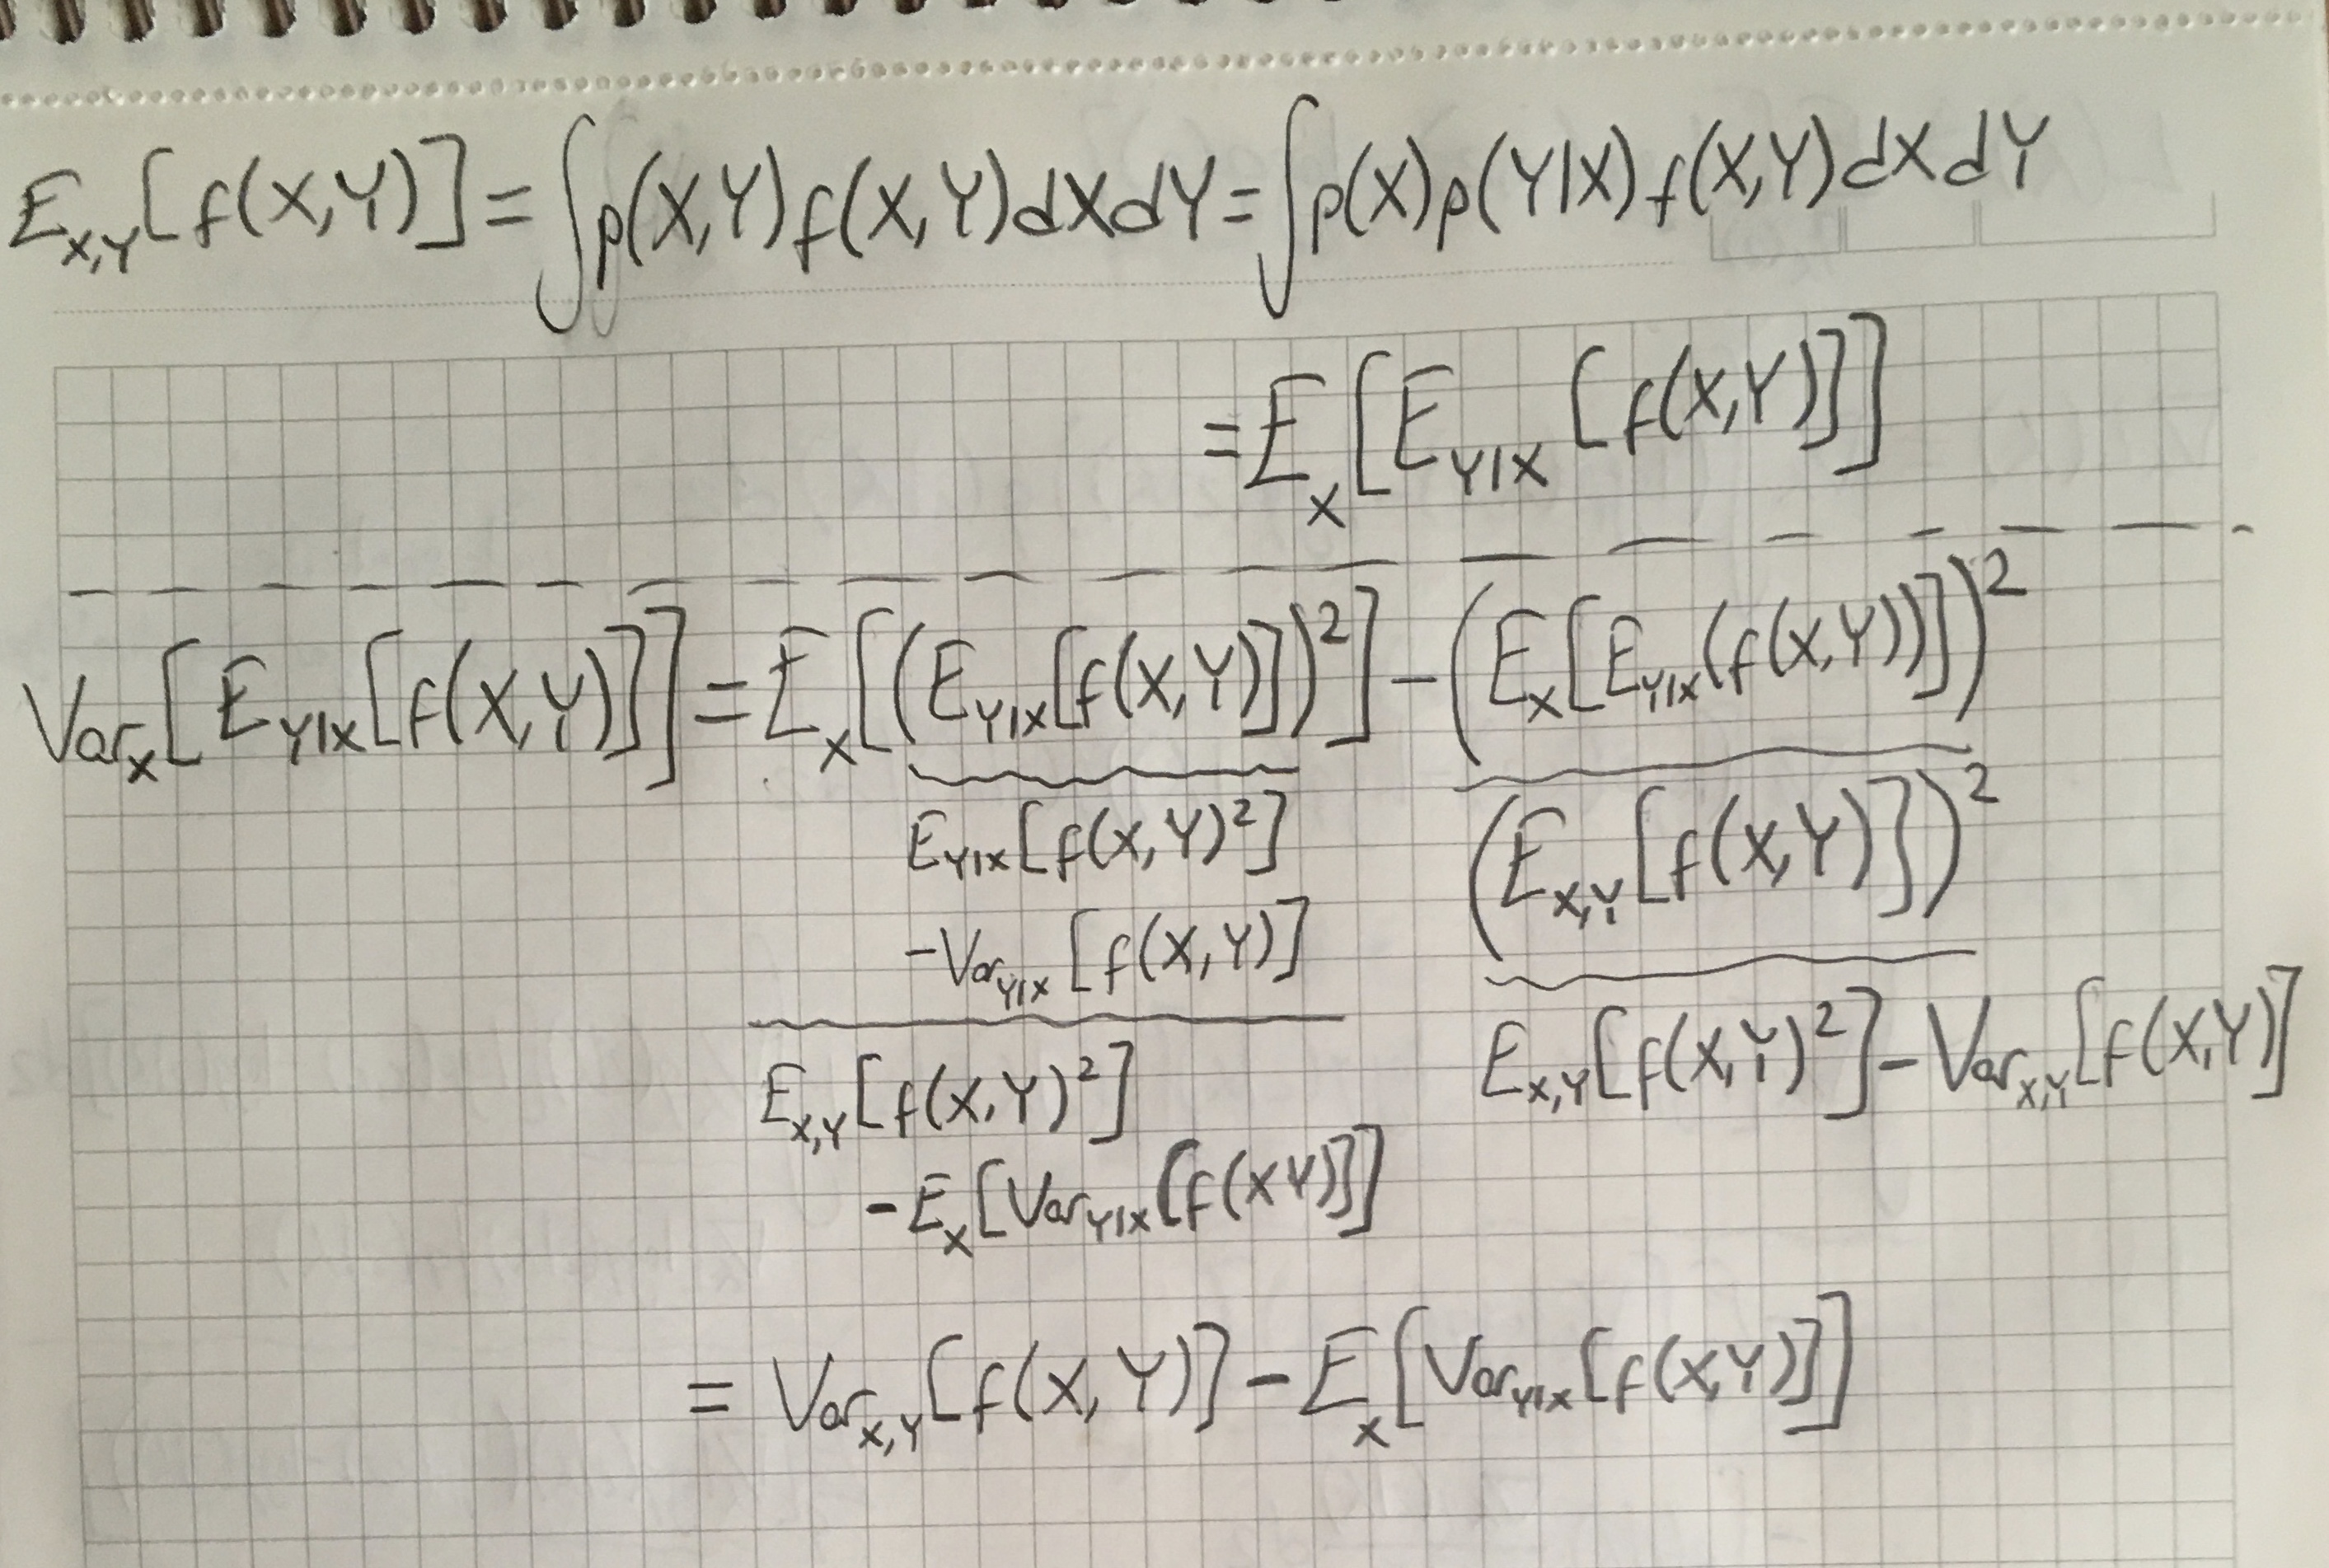 E_{X,Y}[f(X,Y)] = ∫p(X,Y)f(X,Y)dXdY = ∫p(X)p(Y|X)f(X,Y)dXdY
= E_X[E_{Y|X}[f(X,Y)]]
Var_X[E_{Y|X}[f(X,Y)]] = E_X[(E_{Y|X}[f(X,Y)])^2] - (E_X[E_{Y|X}(f(X,Y))])^2
E_{Y|X}[f(X,Y)^2]
-Var_{Y|X}[f(X,Y)]
(E_{X,Y}[f(X,Y)])^2
E_{X,Y}[f(X,Y)^2]
-E_X[Var_{Y|X}[f(XY)]]
E_{X,Y}[f(X,Y)^2] - Var_{X,Y}[f(X,Y)]
= Var_{X,Y}[f(X,Y)] - E_X[Var_{Y|X}[f(X,Y)]]